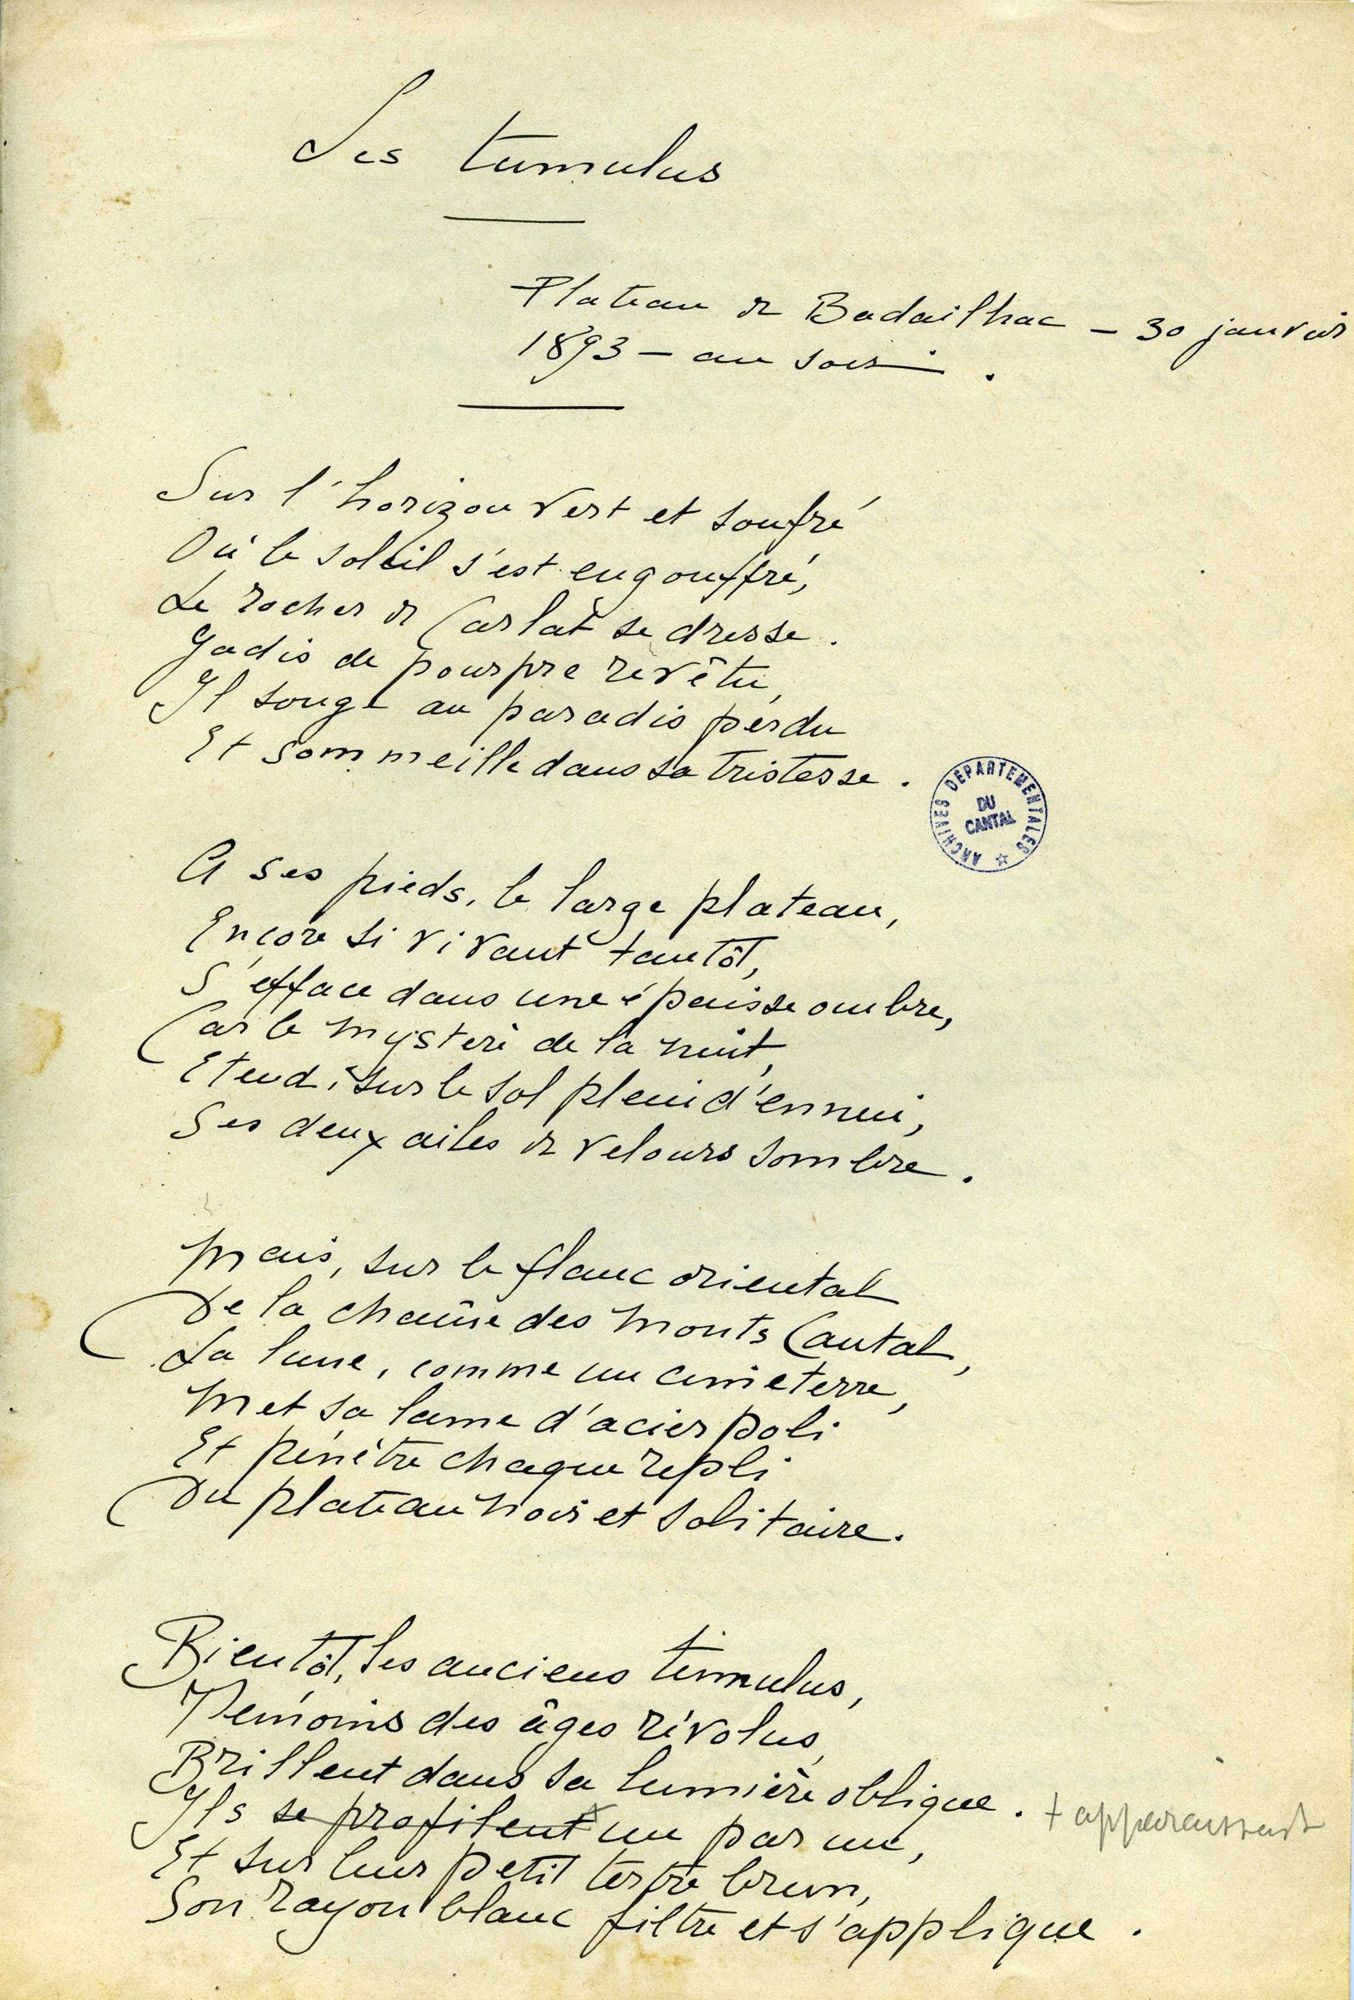 Les tumulus
Plateau de Badailhac – 30 janvier
1893 – au soir.
Sur l'horizon vert et soufré
Où le soleil s'est engouffré,
Le rocher de Carlat se dresse.
Jadis de pourpre revêtu,
Il songe au paradis perdu
Et sommeille dans sa tristesse.
ARCHIVES DÉPARTEMENTALES
DU
CANTAL
A ses pieds, le large plateau,
Encore si vivant tantôt,
S'efface dans une épaisse ombre,
Car le mystère de la nuit,
Etend, sur le sol plein d'ennui,
Ses deux ailes de velours sombre.
Mais, sur le flanc oriental
De la chaîne des monts Cantal,
La lune, comme un cimeterre,
Met sa lame d'acier poli
Et pénètre chaque repli
Du plateau noir et solitaire.
Bientôt, les anciens tumulus,
Témoins des âges révolus,
Brillent dans sa lumière oblique.
Ils se profilent un par un, + apparaissent
Et sur leur petit tertre brun,
Son rayon blanc filtre et s'applique.